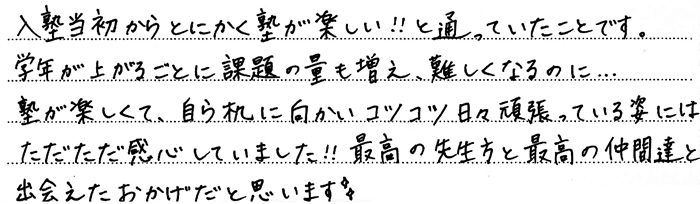 入塾当初からとにかく塾が楽しい!!と通っていたことです。
学年が上がるごとに課題の量も増え、難しくなるのに…
塾が楽しくて、自ら机に向かいコツコツ日々頑張っている姿には
ただただ感心していました!!最高の先生方と最高の仲間達と
出会えたおかげだと思います✨